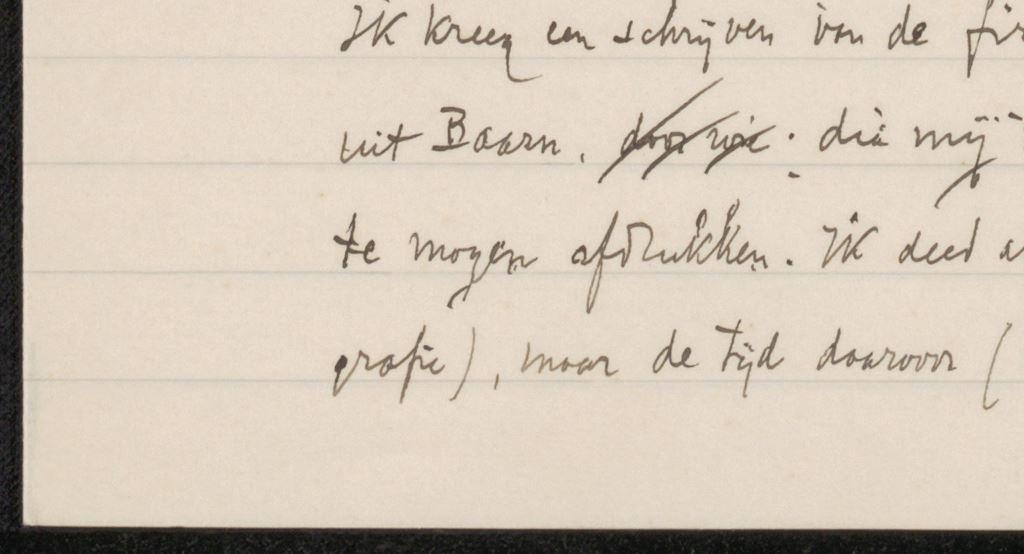 Ik kreeg een schrijven van de
uit Baarn, door wie die mij
te mogen afdrukken. Ik deed
grafie), maar de tijd daarvoor (